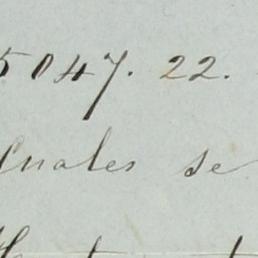 5047. 22.
quales se